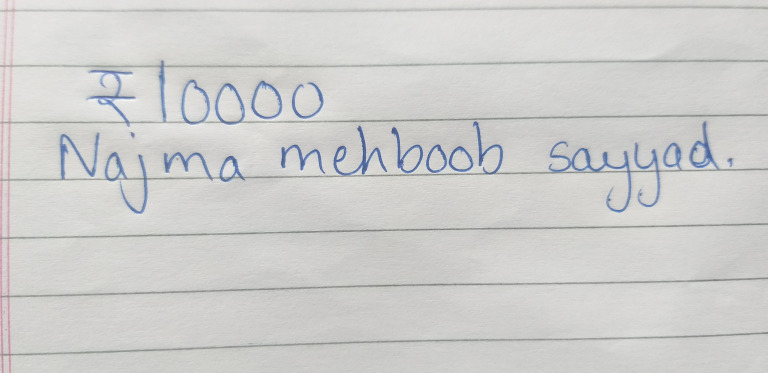 ₹10000
Najma mehboob sayyad.